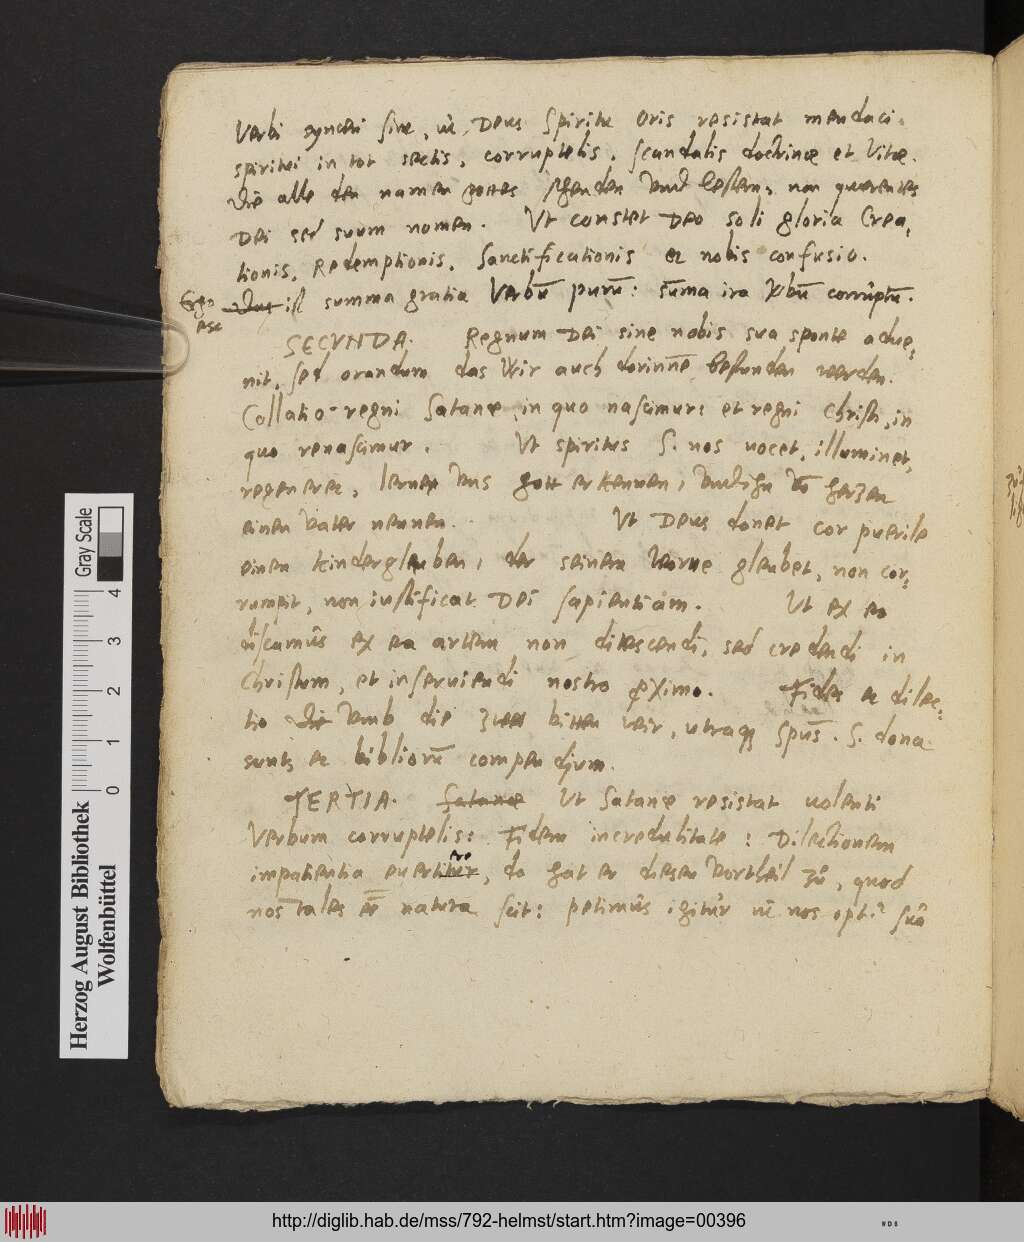 Verbi synceri sive, ut Deus Spiritu Oris resistat mendaci.
spiritui in tot sectis, corruptelis, scandalis doctrinæ et Vitæ.
Die alle den namen gottes schenden Vnd lestern, non querentes
Dei sed suum nomen. Vt constet Deo soli gloria Crea,
tionis, Redemptionis, Sanctificationis et nobis confusio.
Ergo esse
Das ist summa gratia Verbū purū: sūma ira Vbū corrūptū.
SECVNDA. Regnum Dei sine nobis sua sponte adue,
nit, sed orandum das Wir auch dorinnē befunden werden.
Collatio regni Satanæ, in quo nascimur: et regni Christi, in
quo renascimur. Vt spiritus S. nos uocet, illuminet,
regeneret, lernen Vns gott erkennen, Vnd ihn vō herzen
einen Vater nennen. Vt Deus donet cor puerile
einen kinderglauben, der seinem Worte gleubet, non cor,
rumpit, non iustificat Dei sapientiam. Vt ex ea
discamus ex ea artem non ditescendi, sed credendi in
Christum, et inseruiendi nostro proximo. Fides et dilec,
tio Die Vmb die zwei bitten wir, utraq; Spūs. S. dona
sunt, et bibliorū compendium.
TERTIA. Satanæ Vt Satanæ resistat uolenti
Verbum corruptelis: Fidem incredulitate: Dilectionem
impatientia euertitur ere, do hat er diesen Vortheil zu, quod
nos tales natura scit: petimus igitur ut nos opti suo
Herzog August Bibliothek
Wolfenbüttel
Gray Scale
0 1 2 3 4
http://diglib.hab.de/mss/792-helmst/start.htm?image=00396